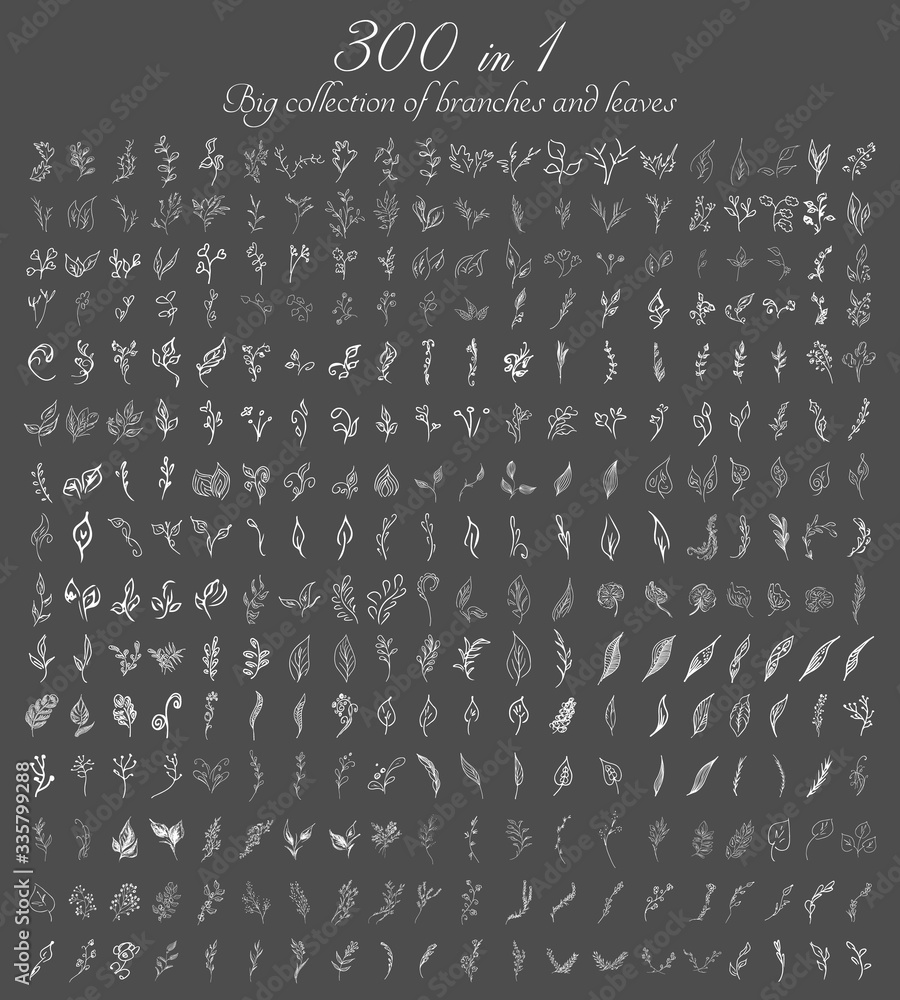 300 in 1
Big collection of branches and leaves
Adobe Stock | #335799288